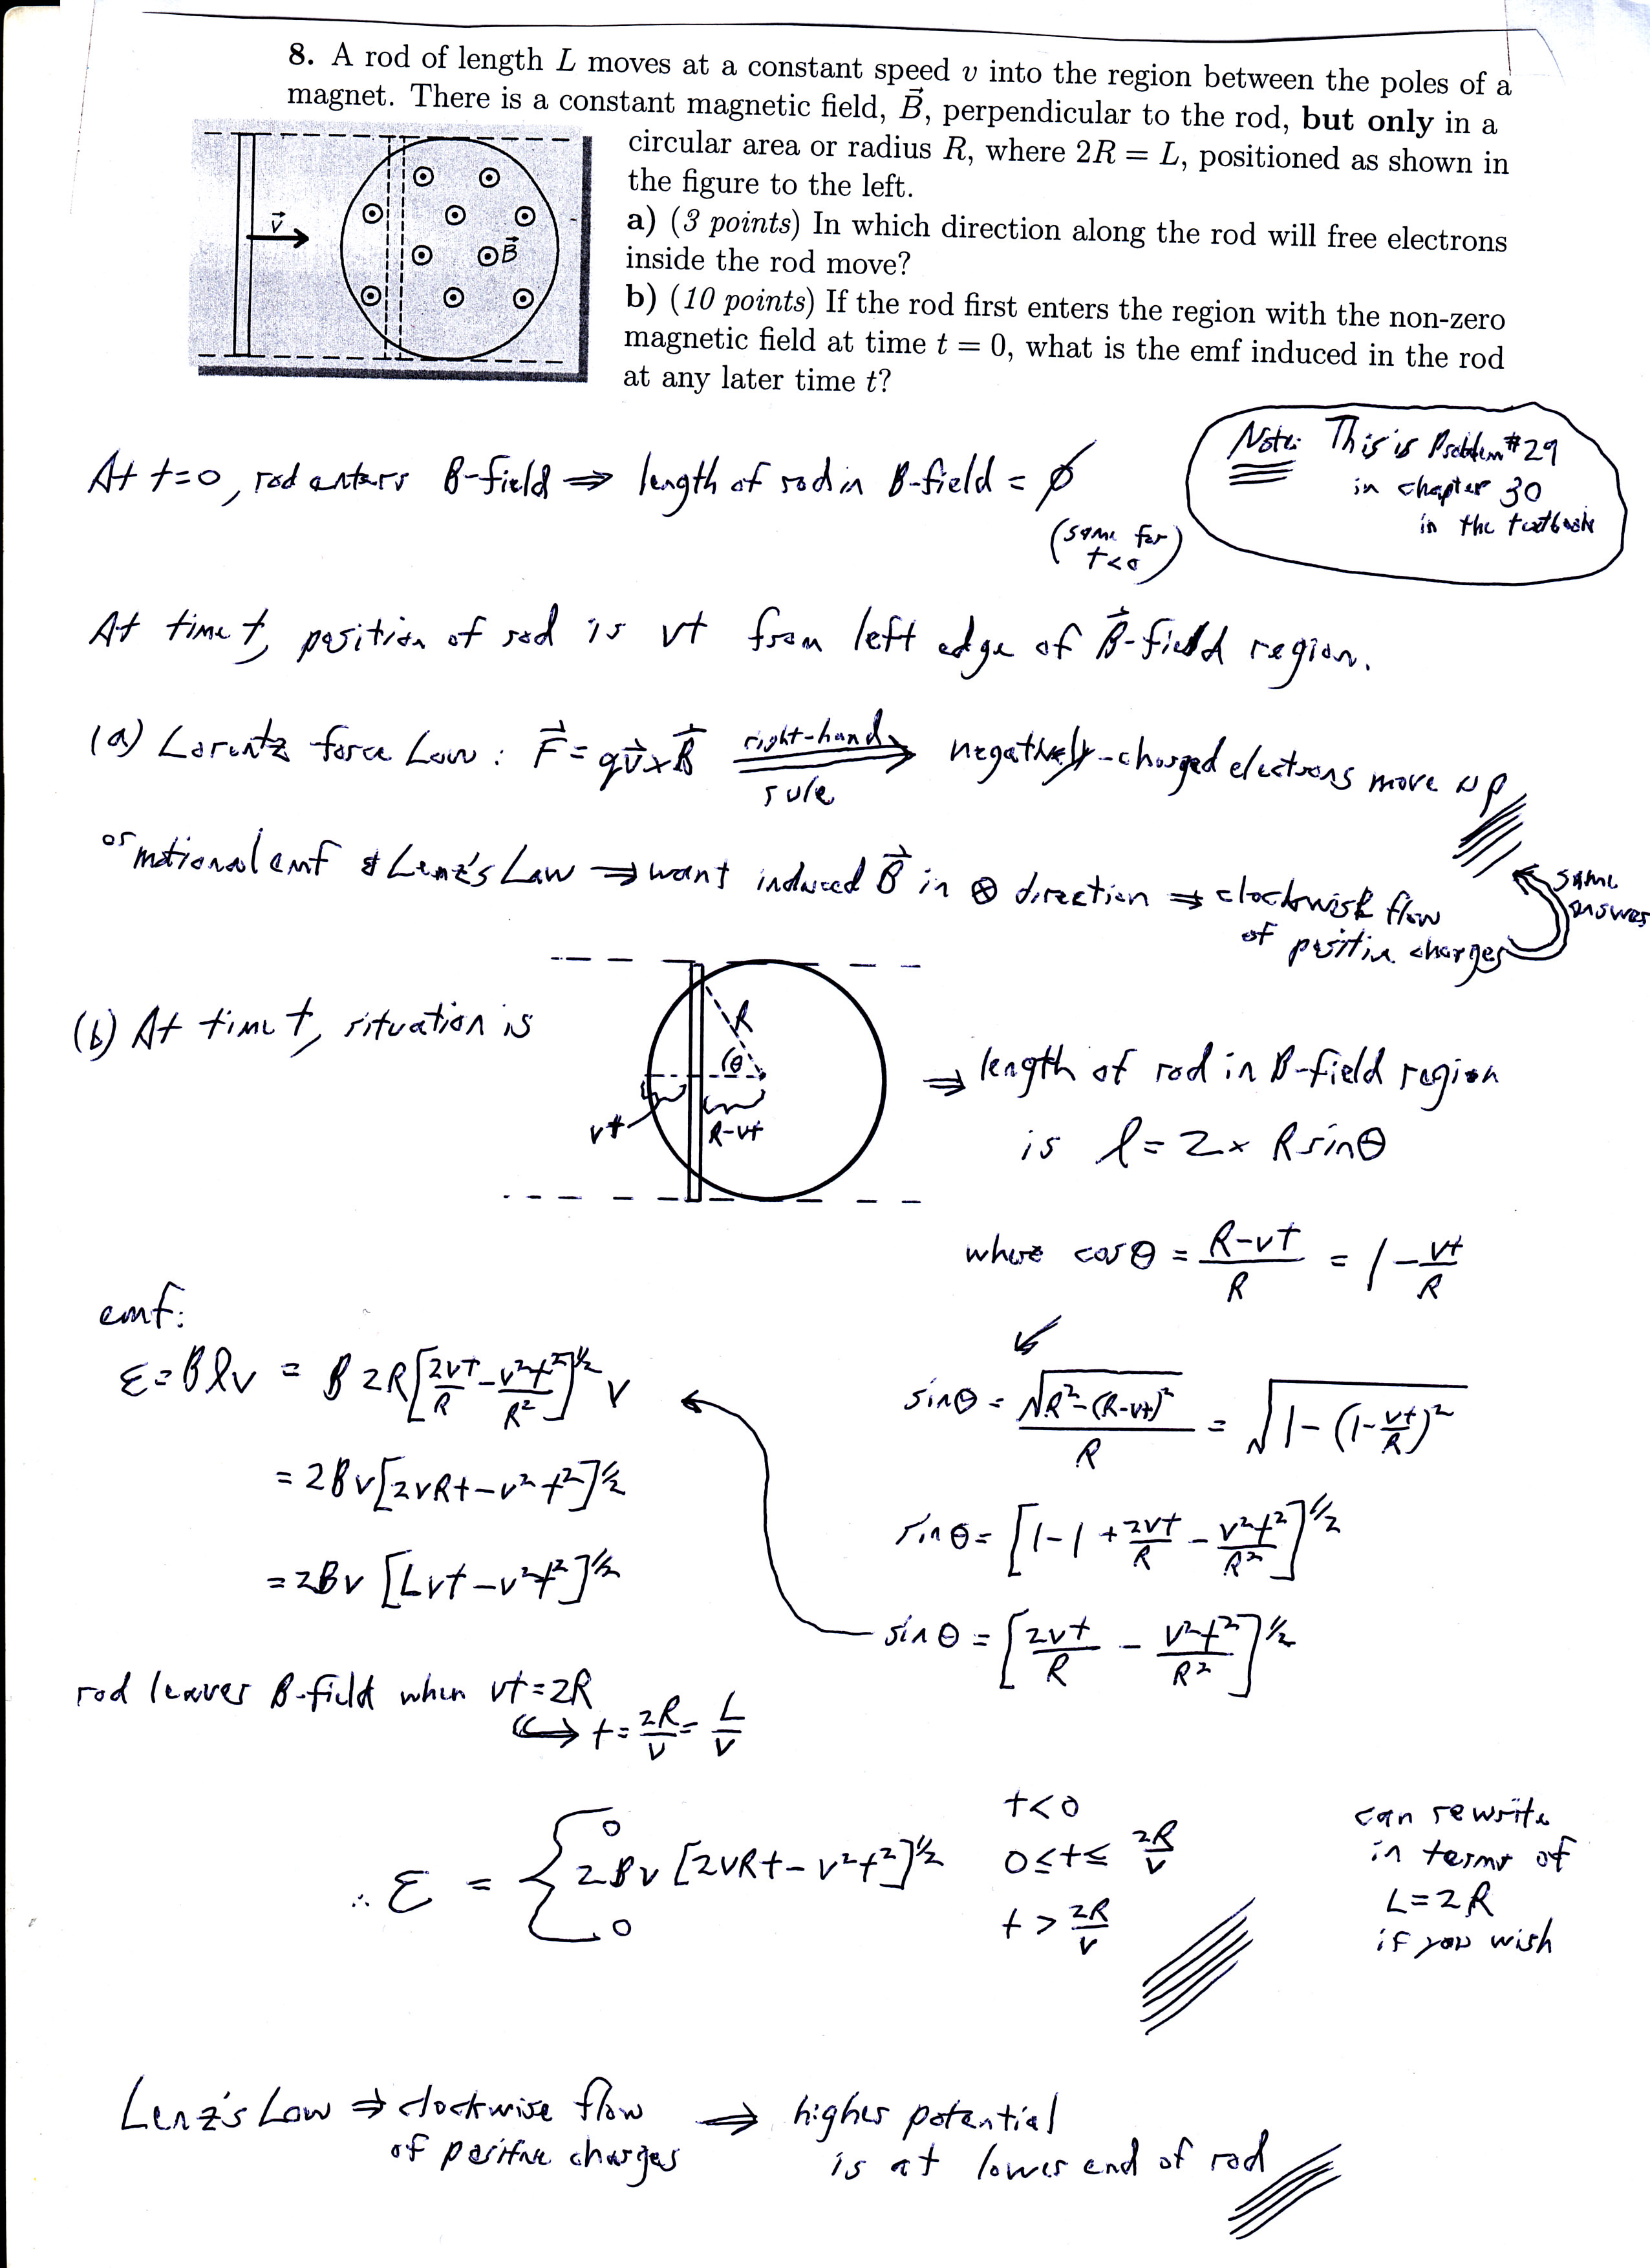 8. A rod of length L moves at a constant speed v into the region between the poles of a
magnet. There is a constant magnetic field, B⃗, perpendicular to the rod, but only in a
circular area or radius R, where 2R = L, positioned as shown in
the figure to the left.
a) (3 points) In which direction along the rod will free electrons
inside the rod move?
b) (10 points) If the rod first enters the region with the non-zero
magnetic field at time t = 0, what is the emf induced in the rod
at any later time t?
v⃗
B⃗
Note: This is Problem #29
in chapter 30
in the textbook
At t=0, rod enters B-field ⇒ length of rod in B-field = ∅
(same for
t<0)
At time t, position of rod is vt from left edge of B⃗-field region.
(a) Lorentz force Law: F⃗ = qv⃗×B⃗ right-hand rule ⇒ negatively-charged electrons move up
or motional emf & Lenz's Law ⇒ want induced B⃗ in ⊗ direction ⇒ clockwise flow
of positive charges
same
answer
(b) At time t, situation is
R
θ
vt
R-vt
⇒ length of rod in B-field region
is l = 2 × R sinθ
where cosθ = (R-vt)/R = 1 - vt/R
emf:
ε = Blv = B 2R[2vt/R - v²t²/R²]^½ v
= 2Bv[2vRt - v²t²]^½
= 2Bv [Lvt - v²t²]^½
sinθ = √(R²-(R-vt)²)/R = √(1-(1-vt/R)²)
sinθ = [1-1+2vt/R - v²t²/R²]^½
sinθ = [2vt/R - v²t²/R²]^½
rod leaves B-field when vt = 2R
⟺ t = 2R/v = L/v
∴ ε = { 0 t<0
2Bv [2vRt - v²t²]^½ 0≤t≤ 2R/v
0 t > 2R/v
can rewrite
in terms of
L=2R
if you wish
Lenz's Law ⇒ clockwise flow
of positive charges
⇒ higher potential
is at lower end of rod